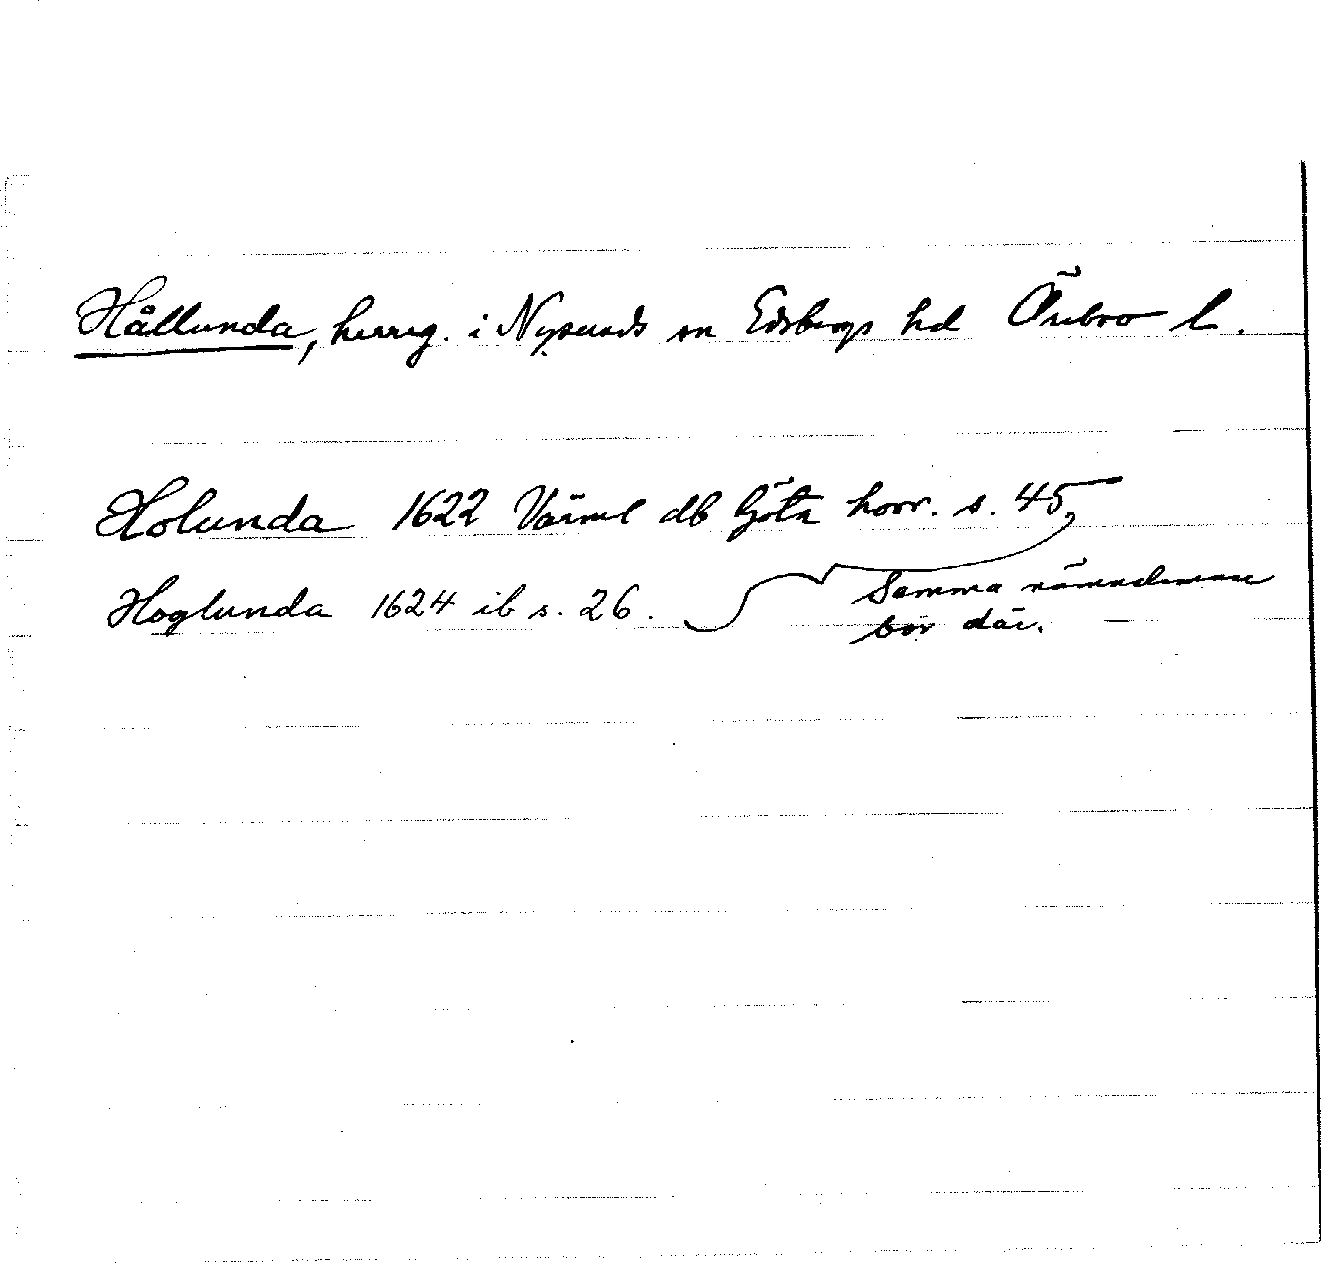 Hållunda, herrg. i Nysunds sn Edsbergs hd Örebro l.
Holunda 1622 Värml db Göta hovr. s. 45,
Hoglunda 1624 ib s. 26.
Samma nämndeman
bor där.